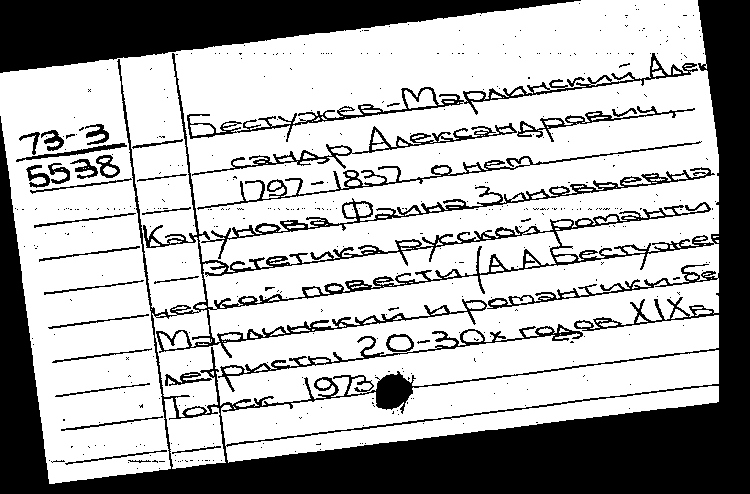 73-3
5538
Бестужев-Марлинский, Алек
сандр Александрович,
1797-1837, о нем.
Канунова, Фаина Зиновьевна.
Эстетика русской романти-
ческой повести. (А.А. Бестужев
Марлинский и романтики-бе
летристы 20-30х годов XIXв
Томск, 1973